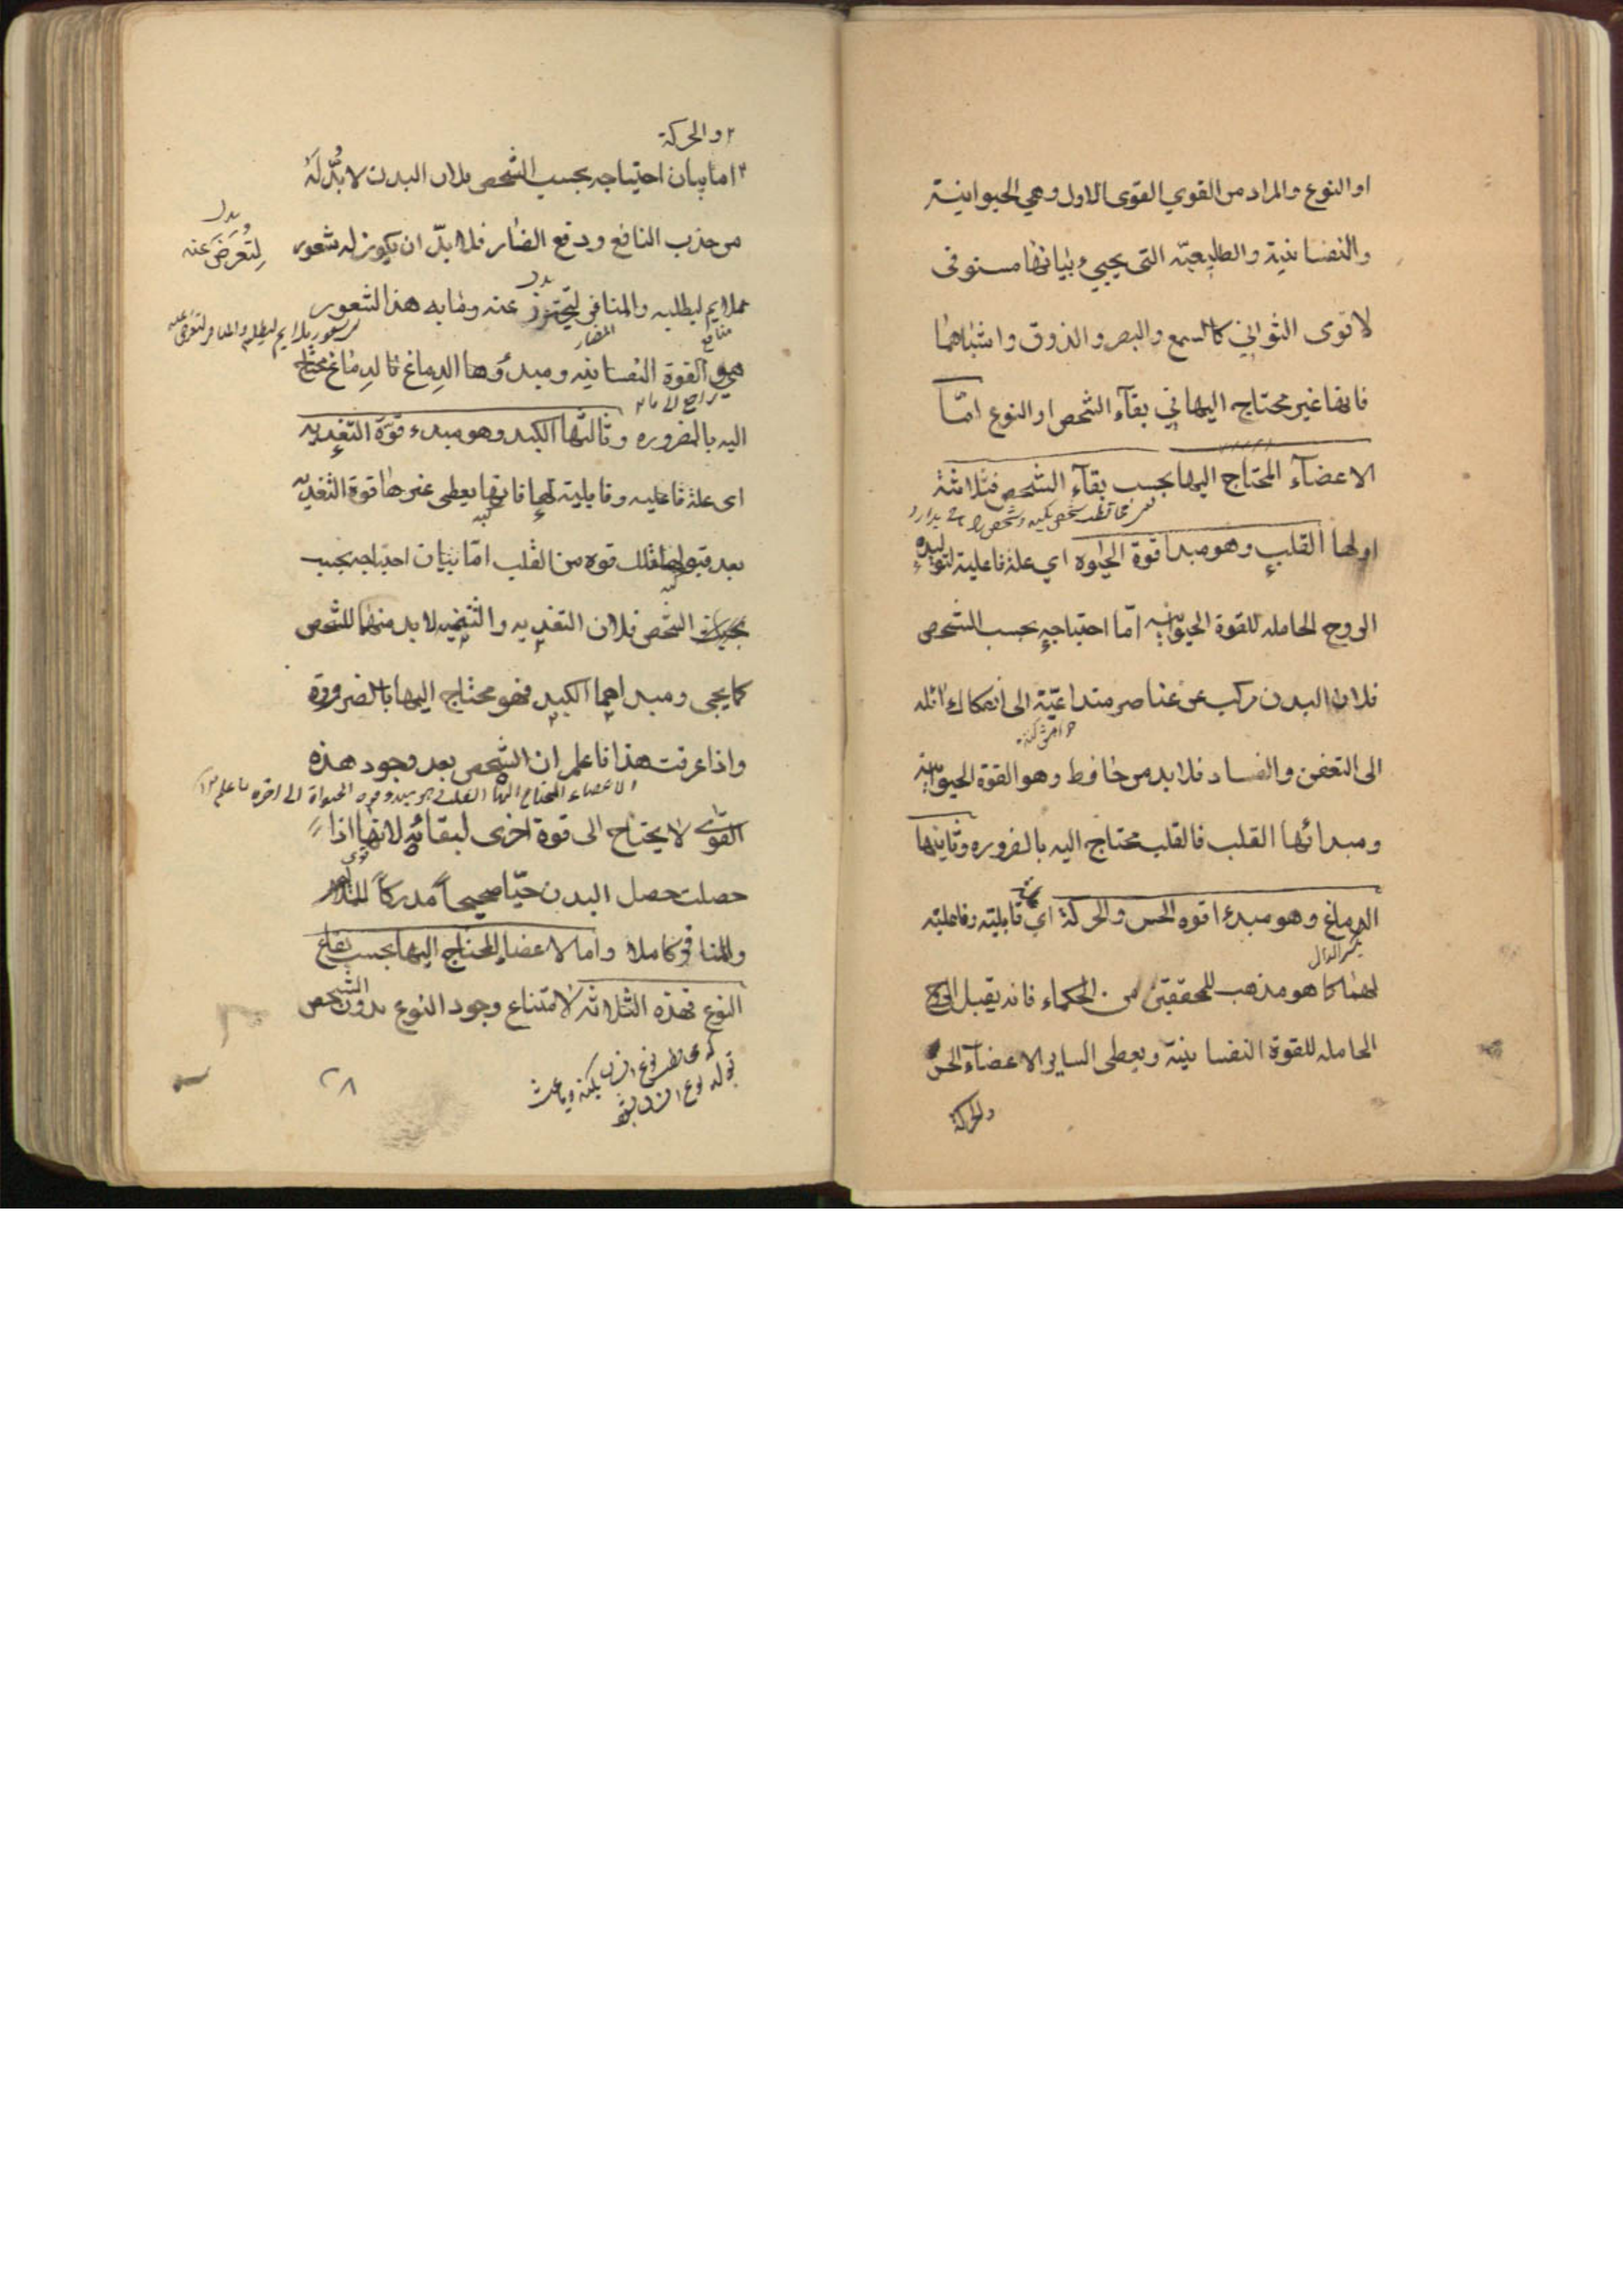 او النوع والمراد من القوي القوى الاول وهي الحيوانية
والنفسانية والطبيعيّة التى يجيي بيانها مستوفى
لا قوى الثواني كالسمع والبصر والذوق واشباهما
فانها غير محتاجه اليها في بقآء الشخص او النوع امّا
الاعضآء المحتاج اليها بحسب بقآء الشخص فثلاثة
اولها القلب وهو مبدا قوة الحيوه اي علة فاعلية لتوليده
الروح الحامله للقوة الحيوانيه امّا احتياجه بحسب الشخص
فلان البدن مركب من عناصر متداعيّة الى انفكاك
الى التعفن والفساد فلا بد من حافظ وهو القوة الحيوانية
ومبدائها القلب فالقلب محتاج اليه بالضروره وثانيها
الدماغ وهو مبدء قوه الحس والحركة اي قابليته وفاعليته
بكسر الدال
لهما كما هو مذهب المحققين من الحكماء فانه يقبل الروح
الحامله للقوة النفسانية ويعطى الساير الاعضآء الحس
والحركة
٢ والحركة
اما بيان احتياجه بحسب الشخص فلان البدن لا بُدّ لَهُ
من جذب النافع ودفع الضار فلا بدّ ان يكون له شعور
بدل
لِتَعرّضَ عنه
بدل
بملايم ليطلبه والمنافى ليحترز عنه وما به هذا الشعور
منافع
المضار
هي القوة النفسانيه ومبدؤها الدِماغ فالدِماغ محتاج
راجع الى ما
اليه بالضروره وثالثها الكبد وهو مبدء قوّة التغذيه
اى علة فاعليه وقابلية لها فانها يعطى غيرها قوة التغذيه
كبد
بعد قبولها تلك قوه من القلب امّا بيان احتياجه بحسب
الشخص فلان التغذيه والتنميه لا بد منها للشخص
كما يجى ومبداهما الكبد فهو محتاج اليها بالضرورة
واذا عرفت هذا فاعلم ان الشخص بعد وجود هذه
القوى لا يحتاج الى قوة اخرى لبقائه لانها اذا
حصلت حصل البدن حيّا صحيحاً مدركاً للملايم
والمنافى كاملا واما الاعضا المحتاج اليها بحسب بقاء
النوع فهذه الثلاثه لامتناع وجود النوع بدون الشخص
٢٨